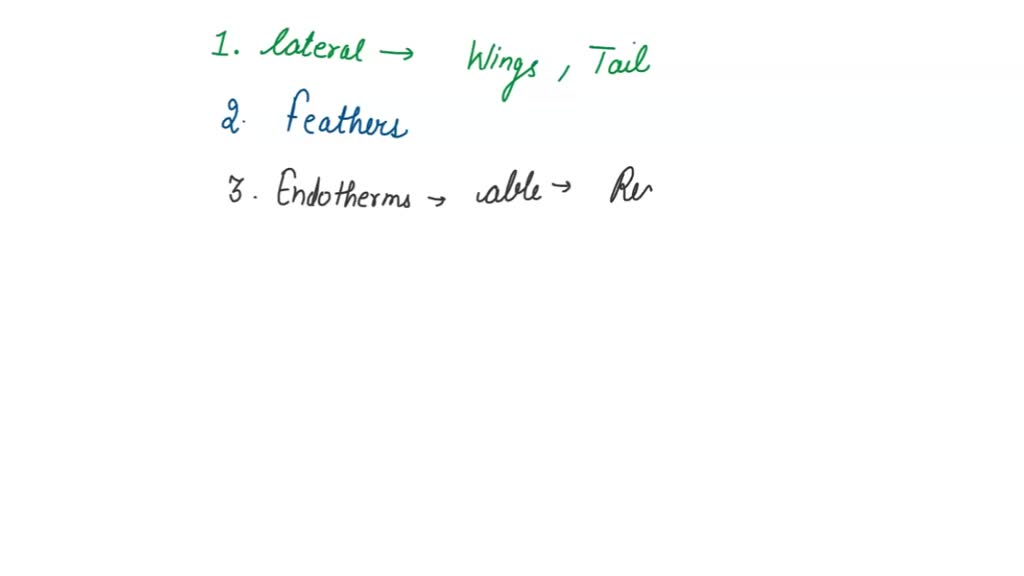 1. lateral → Wings, Tail
2. Feathers
3. Endotherms → able → Re